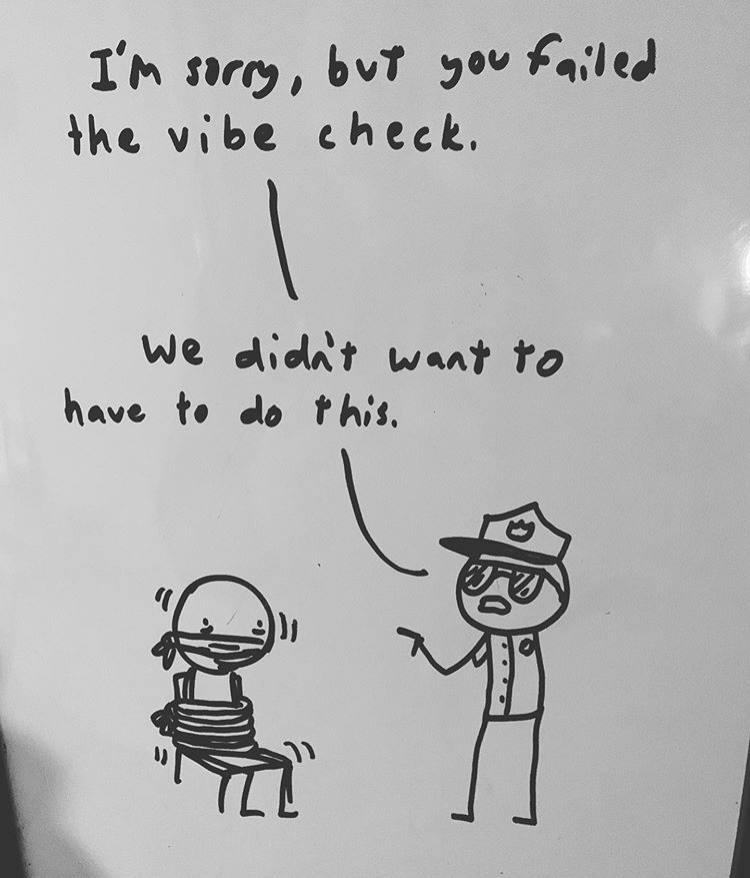 I'm sorry, but you failed
the vibe check.
We didn't want to
have to do this.